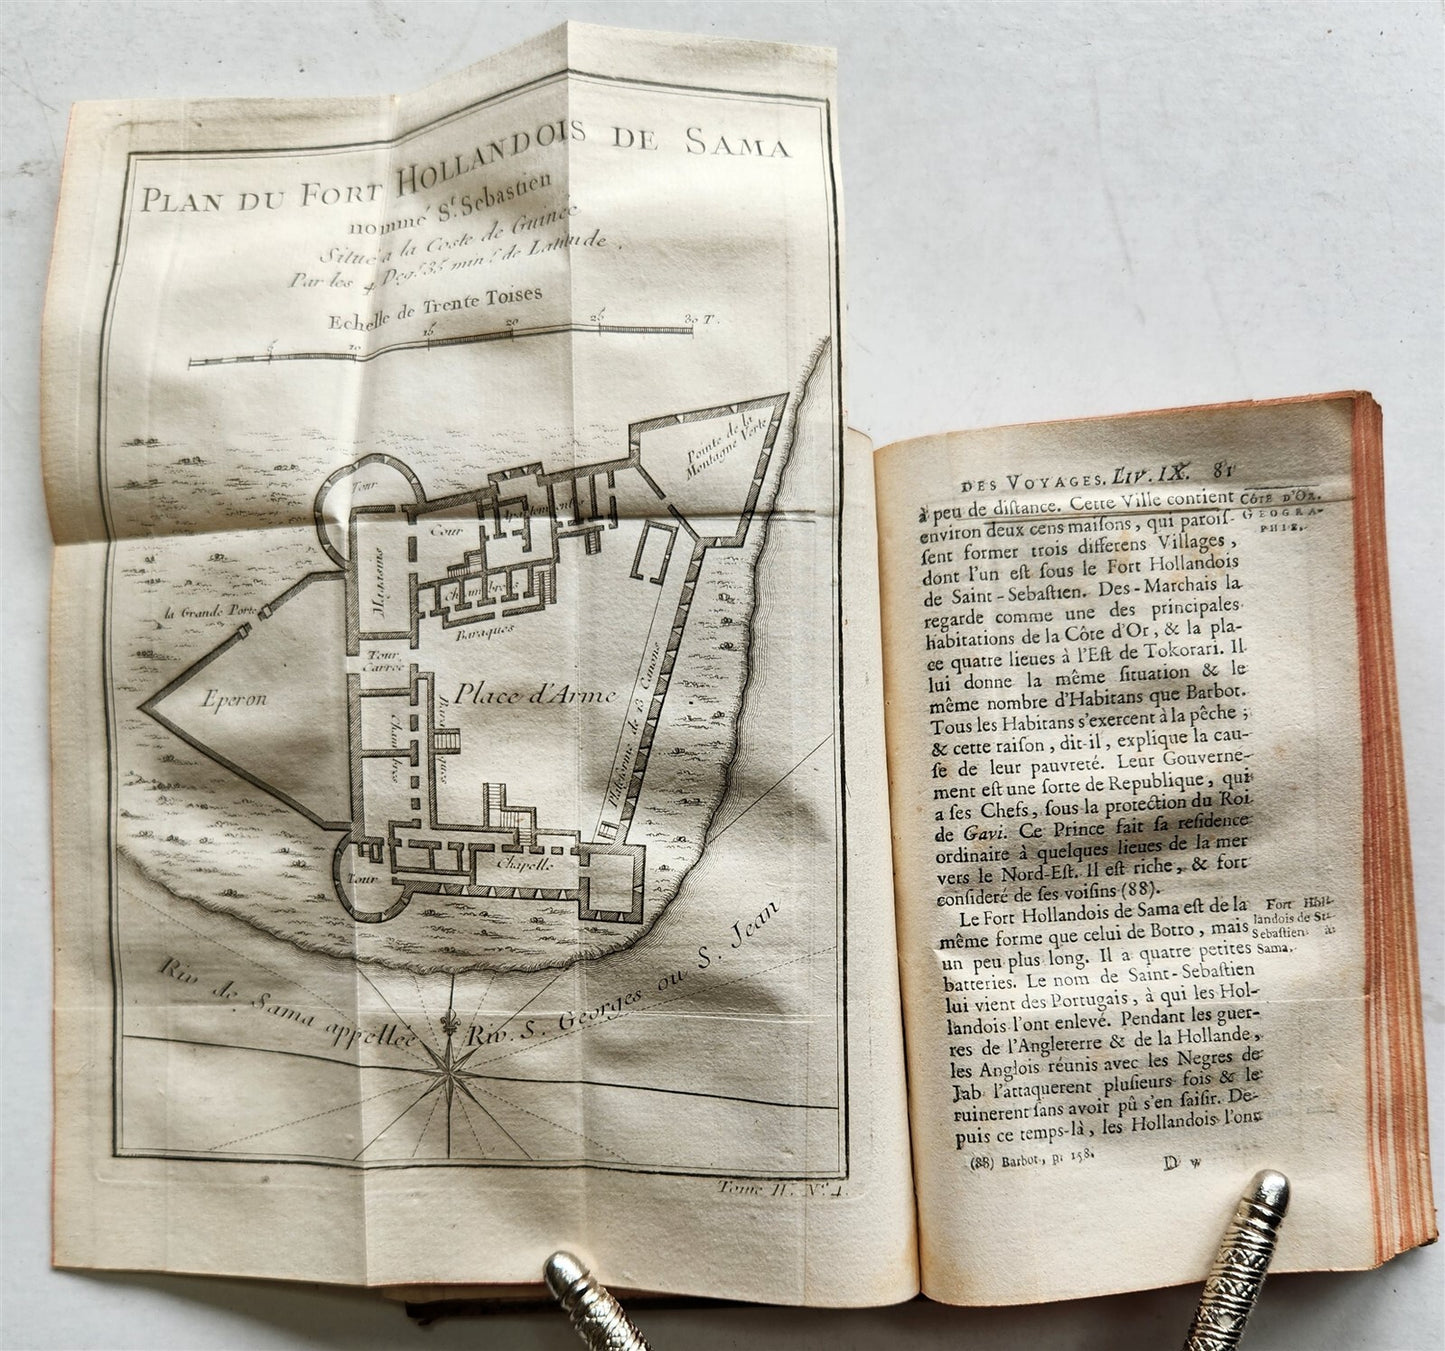 PLAN DU FORT HOLLANDOIS DE SAMA
nommé St. Sebastien
Situé a la Coste de Guinée
Par les 4 Deg.s 35 min.s de Latitude.
Echelle de Trente Toises
5 10 15 20 25 30 T.
Pointe de la
Montagne Verte
Tour
Cour
Apartements
Magasins
Chambres
Baraques
la Grande Porte
Tour
Carrée
Eperon
Place d'Arme
Chambres
Baraques
Plateforme de 13 Canons
Chapelle
Tour
Riv. de Sama appellée Riv. S. Georges ou S. Jean
Tome II. No. 4.
DES VOYAGES. LIV. IX. 81
à peu de diſtance. Cette Ville contient
environ deux cens maiſons, qui paroiſ-
ſent former trois differens Villages,
dont l'un eſt ſous le Fort Hollandois
de Saint-Sebaſtien. Des-Marchais la
regarde comme une des principales
habitations de la Côte d'Or, & la pla-
ce quatre lieues à l'Eſt de Tokorari. Il
lui donne la même ſituation & le
même nombre d'Habitans que Barbot.
Tous les Habitans s'exercent à la pêche ;
& cette raiſon, dit-il, explique la cau-
ſe de leur pauvreté. Leur Gouverne-
ment eſt une ſorte de Republique, qui
a ſes Chefs, ſous la protection du Roi
de Gavi. Ce Prince fait ſa reſidence
ordinaire à quelques lieues de la mer
vers le Nord-Eſt. Il eſt riche, & fort
conſideré de ſes voiſins (88).
Le Fort Hollandois de Sama eſt de la
même forme que celui de Botro, mais
un peu plus long. Il a quatre petites
batteries. Le nom de Saint-Sebaſtien
lui vient des Portugais, à qui les Hol-
landois l'ont enlevé. Pendant les guer-
res de l'Angleterre & de la Hollande,
les Anglois réunis avec les Negres de
Jab l'attaquerent pluſieurs fois & le
ruinerent ſans avoir pû s'en ſaiſir. De-
puis ce temps-là, les Hollandois l'ont
CÔTE D'OR.
GEOGRA-
PHIE.
Fort Hol-
landois de St.
Sebaſtien à
Sama.
(88) Barbot, p. 158.
D v